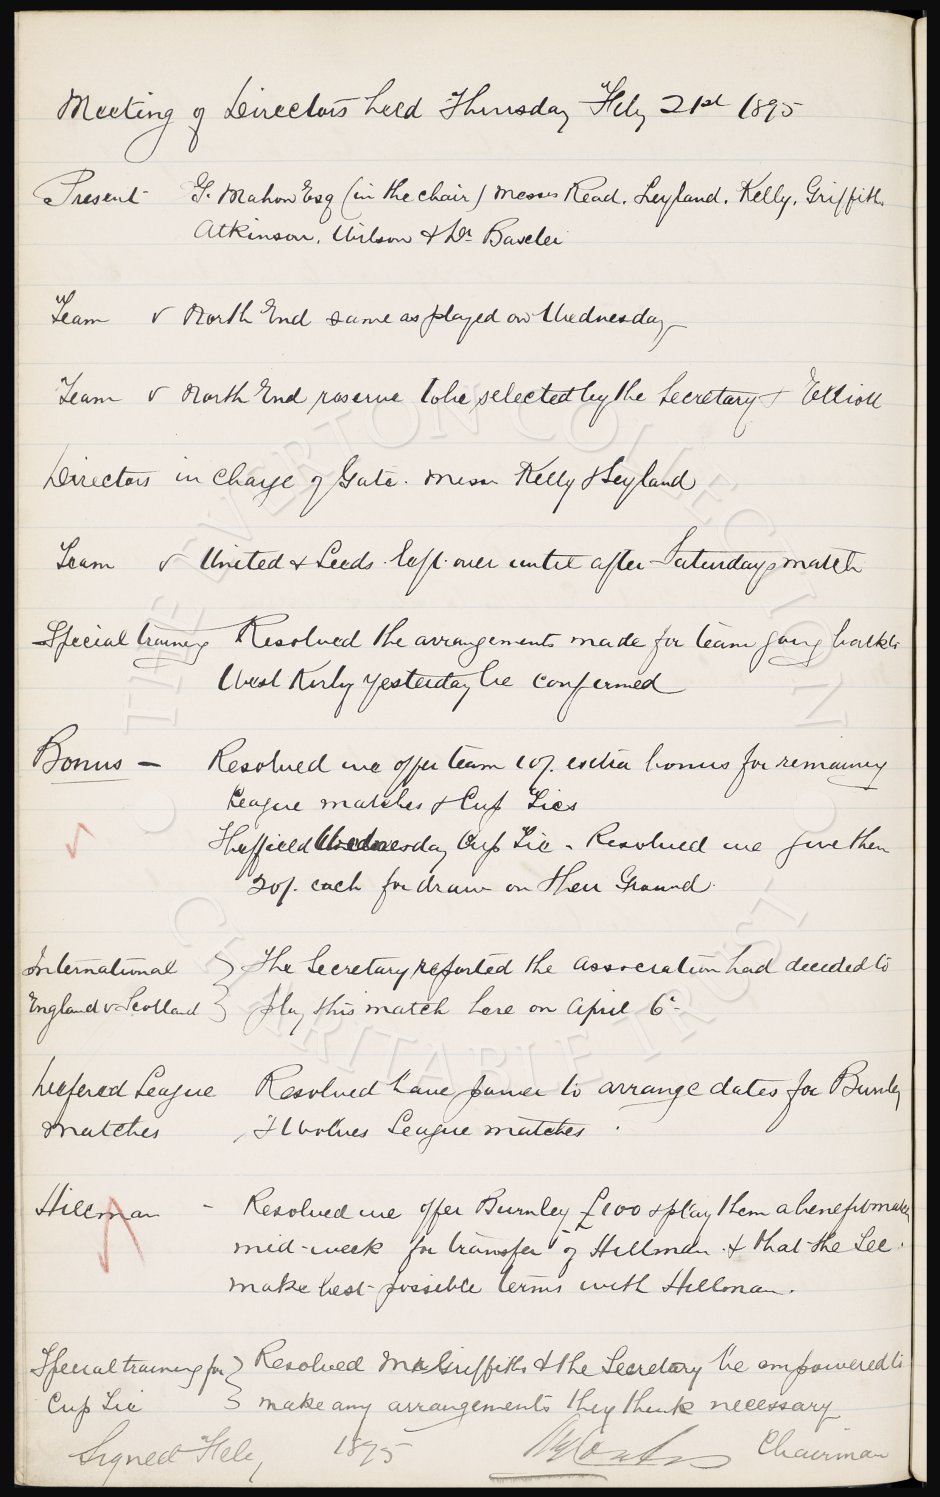 Meeting of Directors held Thursday Feby 21st 1895
Present G. Mahon Esq (in the chair) Messrs Read, Leyland, Kelly, Griffiths
Atkinson, Wilson & Dr Baxter
Team v North End same as played on Wednesday
Team v North End reserve to be selected by the Secretary & Elliott
Directors in Charge of Gate. Messrs Kelly & Leyland
Team v United & Leeds left over until after Saturdays match
Special training Resolved the arrangements made for team going back to
West Kirby yesterday be confirmed
Bonus - Resolved we offer team 10/. extra bonus for remaining
League matches & Cup Ties
Sheffield Wednesday Cup Tie - Resolved we give them
20/. each for draw on their Ground.
International } The Secretary reported the association had decided to
England v Scotland } play this match here on April 6th
Defered League Resolved have power to arrange dates for Burnley
matches & Wolves League matches.
Hillman - Resolved we offer Burnley £100 & play them a benefit match
mid-week for transfer of Hillman. & that the Sec.
make best possible terms with Hillman.
Special training for } Resolved Mr Griffiths & the Secretary be empowered to
Cup Tie } make any arrangements they think necessary
Signed Feby 1895 Chairman
© THE EVERTON COLLECTION CHARITABLE TRUST